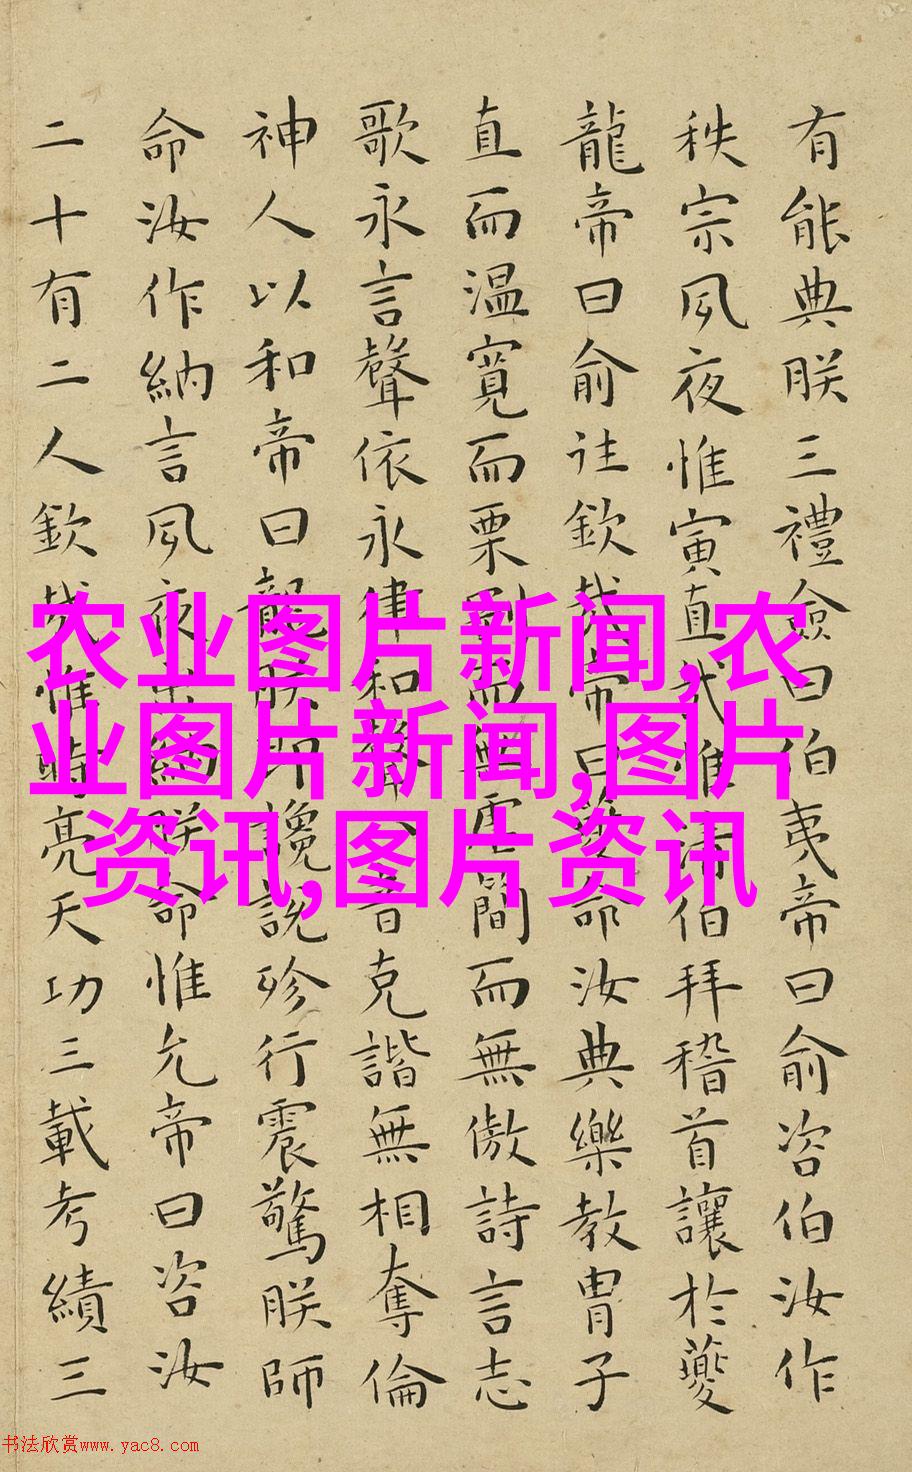 有能典朕三禮僉曰伯夷帝曰俞咨伯汝作
秩宗夙夜惟寅直哉惟清伯拜稽首讓於夔
龍帝曰俞往欽哉帝曰夔命汝典樂教胄子
直而温寬而栗剛而無虐簡而無傲詩言志
歌永言聲依永律和聲八音克諧無相奪倫
神人以和帝曰龍朕讒說殄行震驚朕師
命汝作納言夙夜出納朕命惟允帝曰咨汝
二十有二人欽哉惟時亮天功三載考績三
农业图片新闻,农
业图片新闻,图片
资讯,图片资讯
书法欣赏www.yac8.com